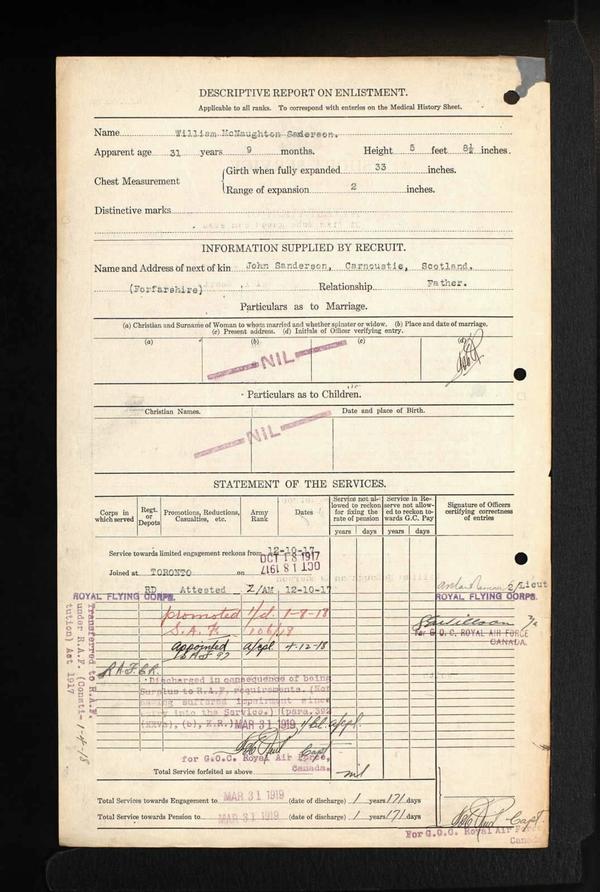 DESCRIPTIVE REPORT ON ENLISTMENT.
Applicable to all ranks. To correspond with entries on the Medical History Sheet.
Name William McNaughton Sanderson.
Apparent age 31 years 9 months. Height 5 feet 8½ inches.
Chest Measurement
Girth when fully expanded 33 inches.
Range of expansion 2 inches.
Distinctive marks
INFORMATION SUPPLIED BY RECRUIT.
Name and Address of next of kin John Sanderson, Carnoustie, Scotland.
(Forfarshire) Relationship Father.
Particulars as to Marriage.
(a) Christian and Surname of Woman to whom married and whether spinster or widow. (b) Place and date of marriage.
(c) Present address. (d) Initials of Officer verifying entry.
(a) (b) (c) (d)
NIL
Particulars as to Children.
Christian Names. Date and place of Birth.
NIL
STATEMENT OF THE SERVICES.
Corps in which served
Regt. or Depots
Promotions, Reductions, Casualties, etc.
Army Rank
Dates
Service not allowed to reckon for fixing the rate of pension
Service in Reserve not allowed to reckon towards G.C. Pay
Signature of Officers certifying correctness of entries
years days years days
Service towards limited engagement reckons from 12-10-17
OCT 18 1917
Joined at TORONTO on OCT 18 1917
RD Attested 2/AM 12-10-17
2/Lieut
ROYAL FLYING CORPS.
ROYAL FLYING CORPS.
promoted 1-8-18
for G.O.C. ROYAL AIR FORCE
CANADA.
appointed a/cpl 4-12-18
Transferred to R.A.F.
under R.A.F. (Consti-
tution) Act 1917
1-4-18
Discharged in consequence of being
Surplus to R.A.F. requirements. (Not
having suffered impairment since
entry into the Service.) (para. 392
MAR 31 1919
Capt
for G.O.C. Royal Air Force,
Canada.
Total Service forfeited as above nil
Total Service towards Engagement to MAR 31 1919 (date of discharge) 1 years 171 days
Total Service towards Pension to MAR 31 1919 (date of discharge) 1 years 171 days
Capt.
For G.O.C. Royal Air Force
Canada